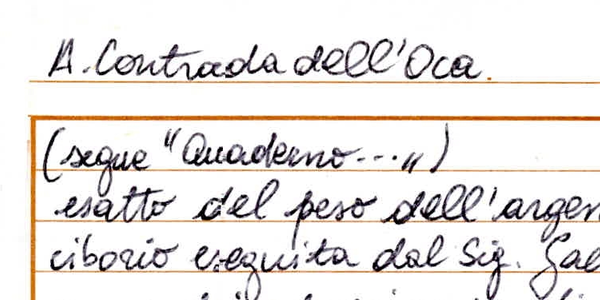 A. Contrada dell'Oca.
(segue "Quaderno...")
esatto del peso dell'argen
ciborio eseguita dal Sig. Gab